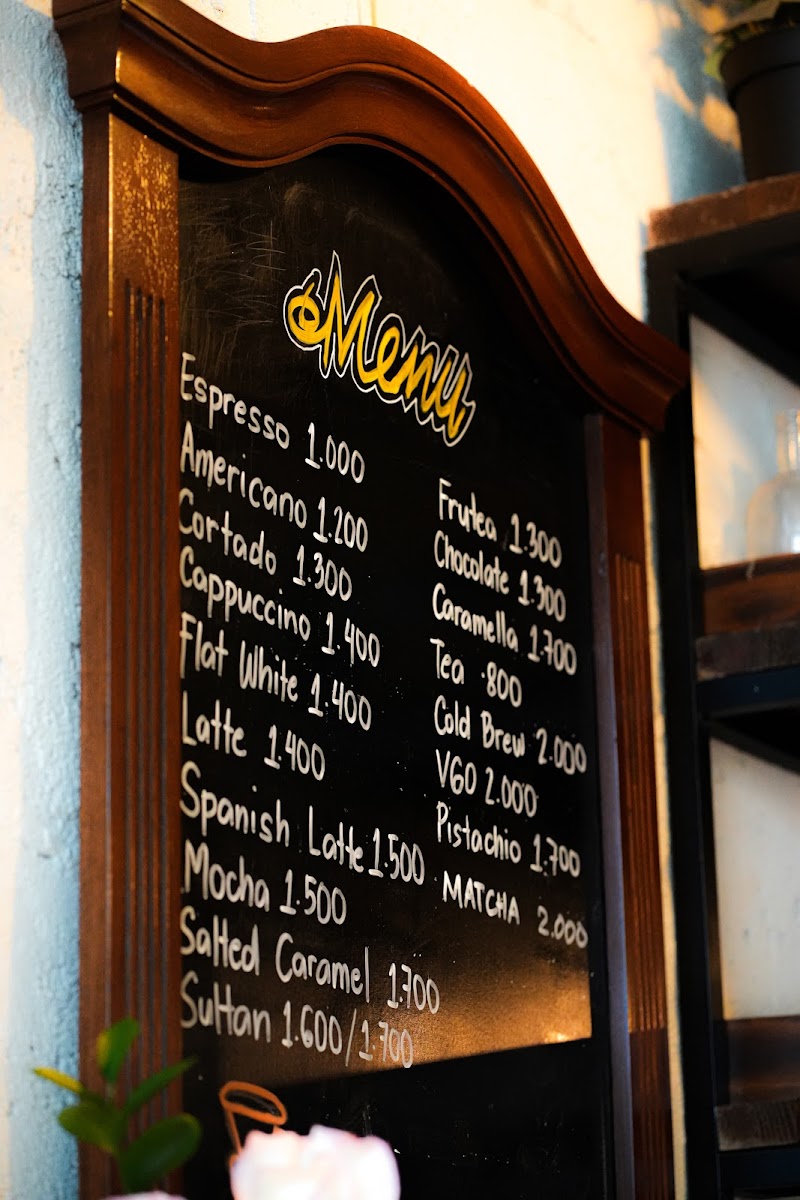 Menu
Espresso 1.000
Americano 1.200
Cortado 1.300
Cappuccino 1.400
Flat White 1.400
Latte 1.400
Spanish Latte 1.500
Mocha 1.500
Salted Caramel 1.700
Sultan 1.600/1.700
Frutea 1.300
Chocolate 1.300
Caramella 1.700
Tea .800
Cold Brew 2.000
V60 2.000
Pistachio 1.700
MATCHA 2.000